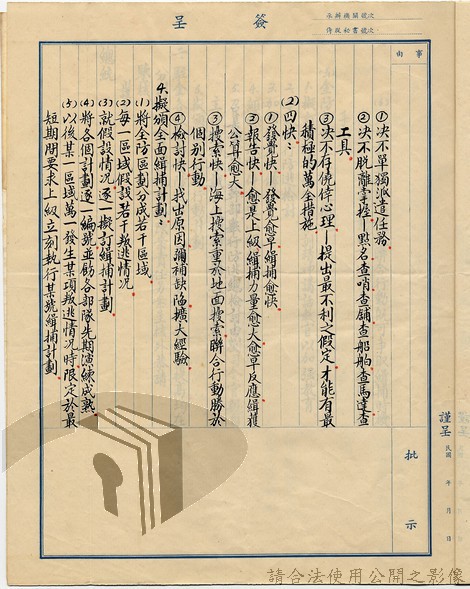 簽呈
次號關機辦承
次號書祕從侍
事由
①决不單獨派遣任務
②决不脫離掌握－點名查哨查舖查船舶查馬達查
工具
③决不存僥倖心理－提出最不利之假定才能有最
積極的萬全措施
(2)四快：
①發覺快－發覺愈早緝捕愈快
②報告快－愈是上級緝捕力量愈大愈早反應緝獲
公算愈大
③搜索快－海上搜索重於地面搜索聯合行動勝於
個別行動
④檢討快－找出原因彌補缺陷擴大經驗
4.擬頒全面緝捕計劃：
(1)將全防區劃分成若干區域
(2)每一區域假設若干叛逃情況
(3)就假設情況逐一擬訂緝捕計劃
(4)將各個計劃逐一編號並飭各部隊先期演練成熟
(5)以後某一區域萬一發生某項叛逃情況時限定於最
短期間要求上級立刻執行某號緝捕計劃
批示
謹呈
民國 年 月 日
請合法使用公開之影像